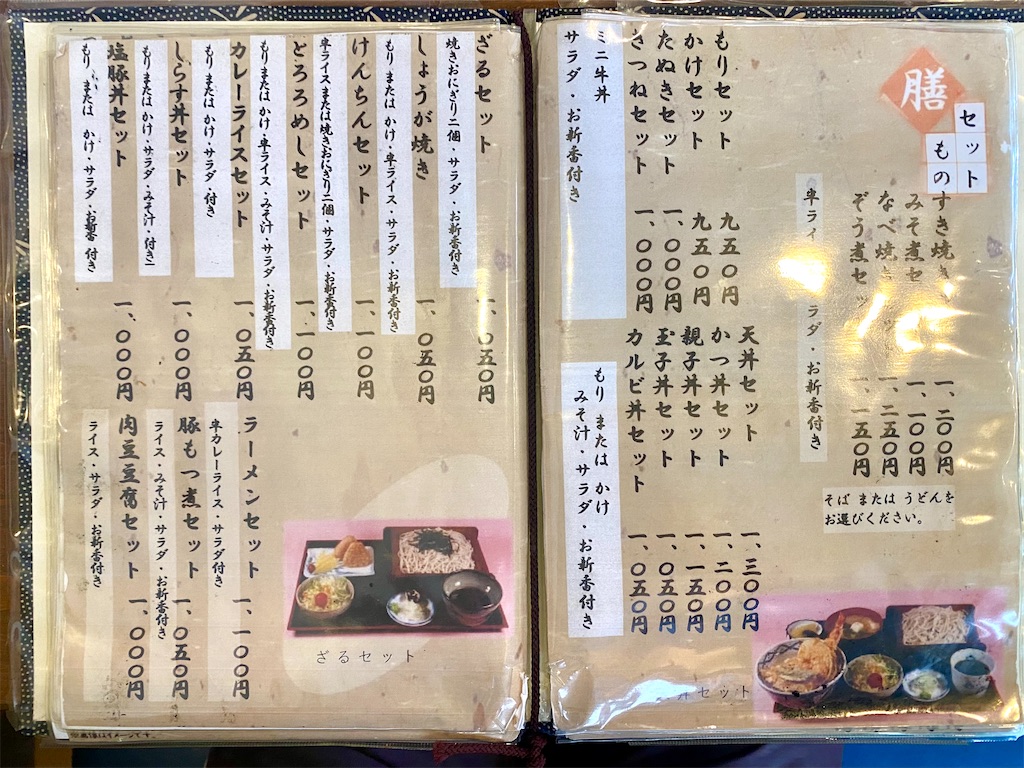 膳
セット
もの
すき焼き
一、二〇〇円
みそ煮セ
一、一〇〇円
なべ焼き
一、二五〇円
ぞう煮セッ
一、一五〇円
半ライ
ラダ・お新香付き
そば または うどんを
お選びください。
もりセット
九五〇円
かけセット
九五〇円
たぬきセット
一、〇〇〇円
きつねセット
一、〇〇〇円
ミニ牛丼
サラダ・お新香付き
天丼セット
一、三〇〇円
かつ丼セット
一、二〇〇円
親子丼セット
一、一五〇円
玉子丼セット
一、〇五〇円
カルビ丼セット
一、〇五〇円
もり または かけ
みそ汁・サラダ・お新香付き
丼セット
ざるセット
一、〇五〇円
焼きおにぎり二個・サラダ・お新香付き
しょうが焼き
一、〇五〇円
もり または かけ・半ライス・サラダ・お新香付き
けんちんセット
一、一〇〇円
半ライス または 焼きおにぎり二個・サラダ・お新香付き
とろろめしセット
一、一〇〇円
もり または かけ・半ライス・みそ汁・サラダ・お新香付き
カレーライスセット
一、〇五〇円
もり または かけ・サラダ・付き
しらす丼セット
一、〇〇〇円
もり または かけ・サラダ・みそ汁・付き
塩豚丼セット
一、〇〇〇円
もり または かけ・サラダ・お新香 付き
ラーメンセット
一、一〇〇円
半カレーライス・サラダ付き
豚もつ煮セット
一、〇五〇円
ライス・みそ汁・サラダ・お新香付き
肉豆腐セット
一、〇〇〇円
ライス・サラダ・お新香付き
ざるセット
※画像はイメージです。